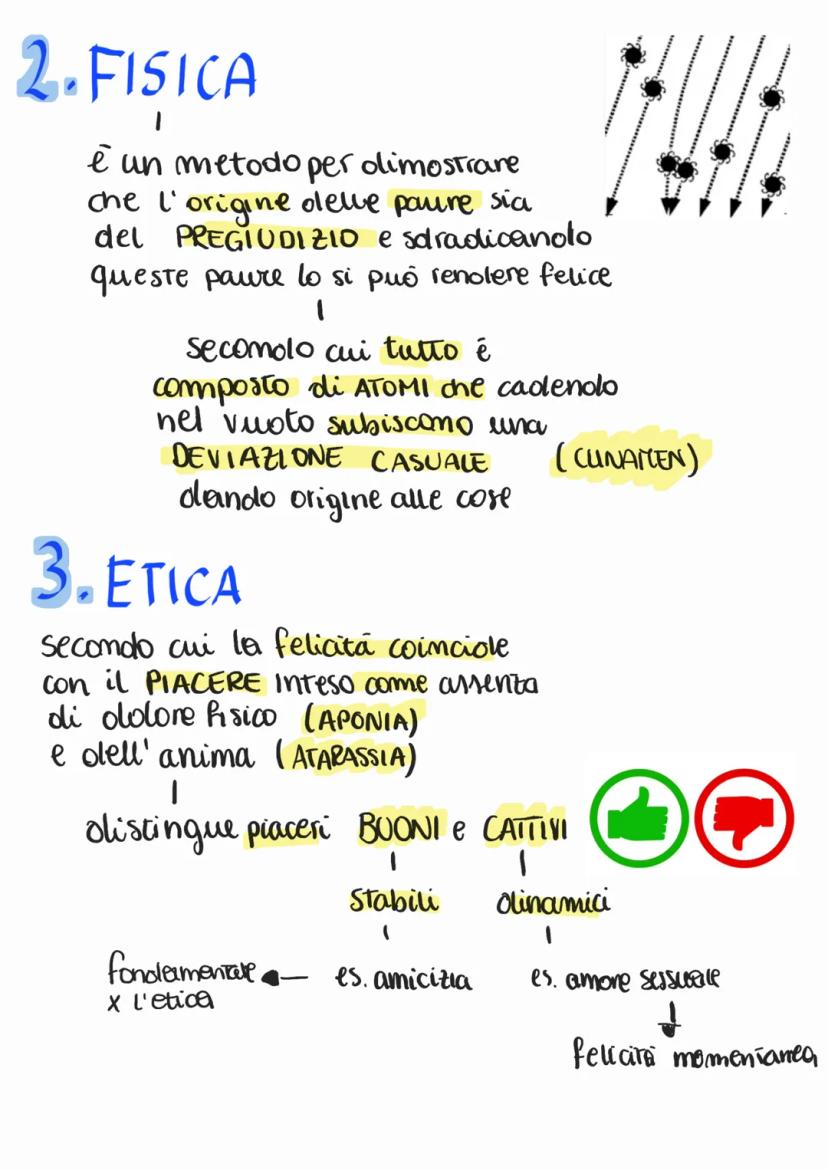 2. FISICA
é un metodo per dimostrare
che l'origine delle paure sia
del PREGIUDIZIO e sdradicandolo
queste paure lo si può rendere felice
secondo cui tutto é
composto di ATOMI che cadendo
nel vuoto subiscono una
DEVIAZIONE CASUALE (CLINAMEN)
dando origine alle cose
3. ETICA
secondo cui la felicitá coincide
con il PIACERE inteso come assenza
di dolore fisico (APONIA)
e dell'anima (ATARASSIA)
distingue piaceri BUONI e CATTIVI
stabili dinamici
fondamentale es. amicizia es. amore sessuale
x l'etica
felicità momentanea